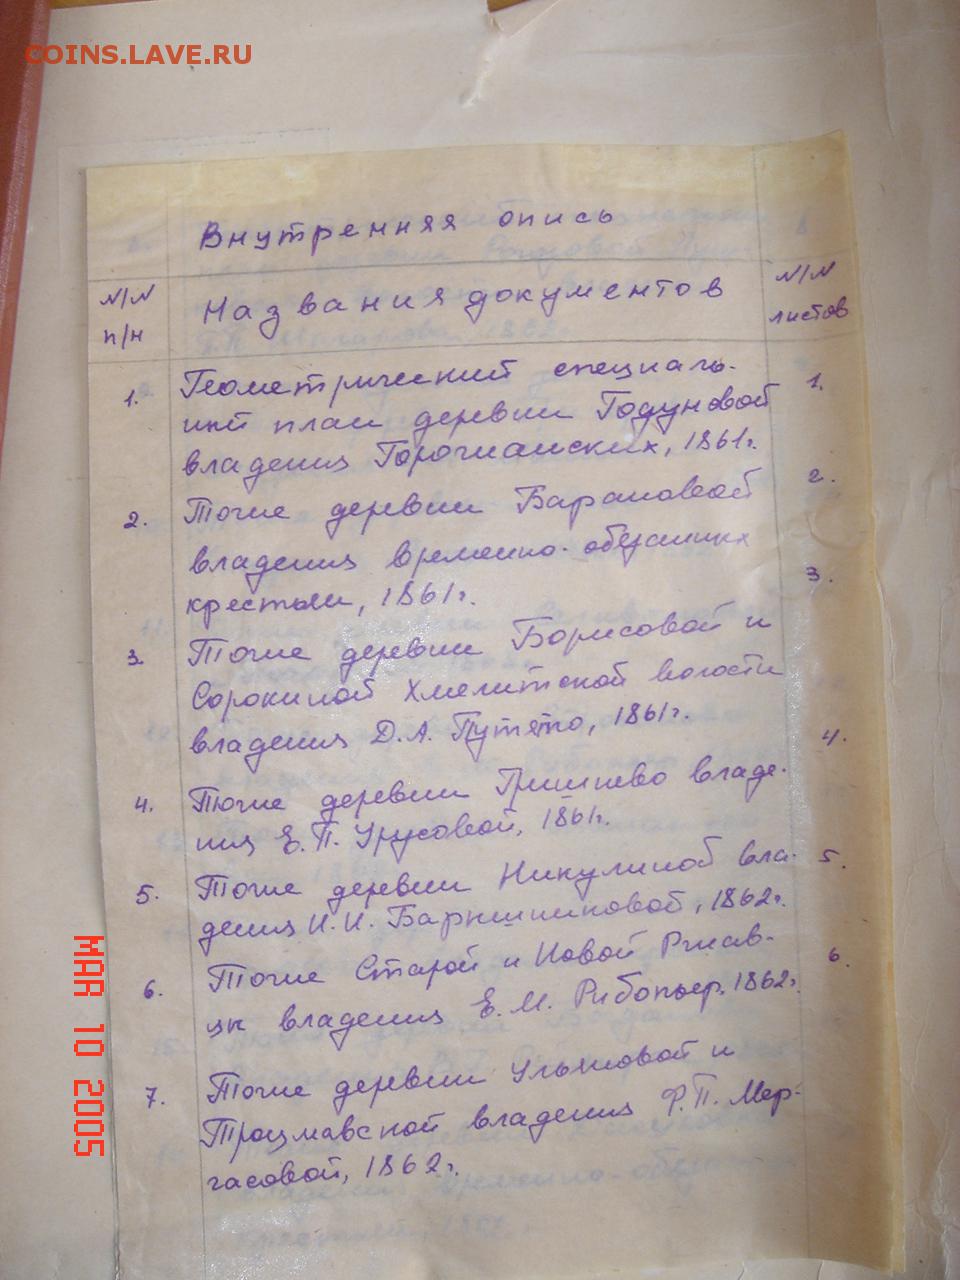 COINS.LAVE.RU
Внутренняя опись
N/N п/н
Названия документов
N/N листов
1. Геометрический специаль-
1.
ный план деревни Годуновой
владения, 1861г.
2. Тоже деревни Барановой
2.
владения временно-обязанных
крестьян, 1861г.
3.
3. Тоже деревни Борисовой и
Сорокиной Хмелитской волости
владения Д.А. Путято, 1861г.
4.
4. Тоже деревни Гришнево владе-
ния Е.П. Урусовой, 1861г.
5. Тоже деревни Никулиной вла-
5.
дения И.И. Барышниковой, 1862г.
6. Тоже Старой и Новой Ржав-
6.
цы владения Е.М. Рибопьер, 1862г.
7. Тоже деревни и
владения Ф.П. Мер-
гасовой, 1862г.
MAR 10 2005